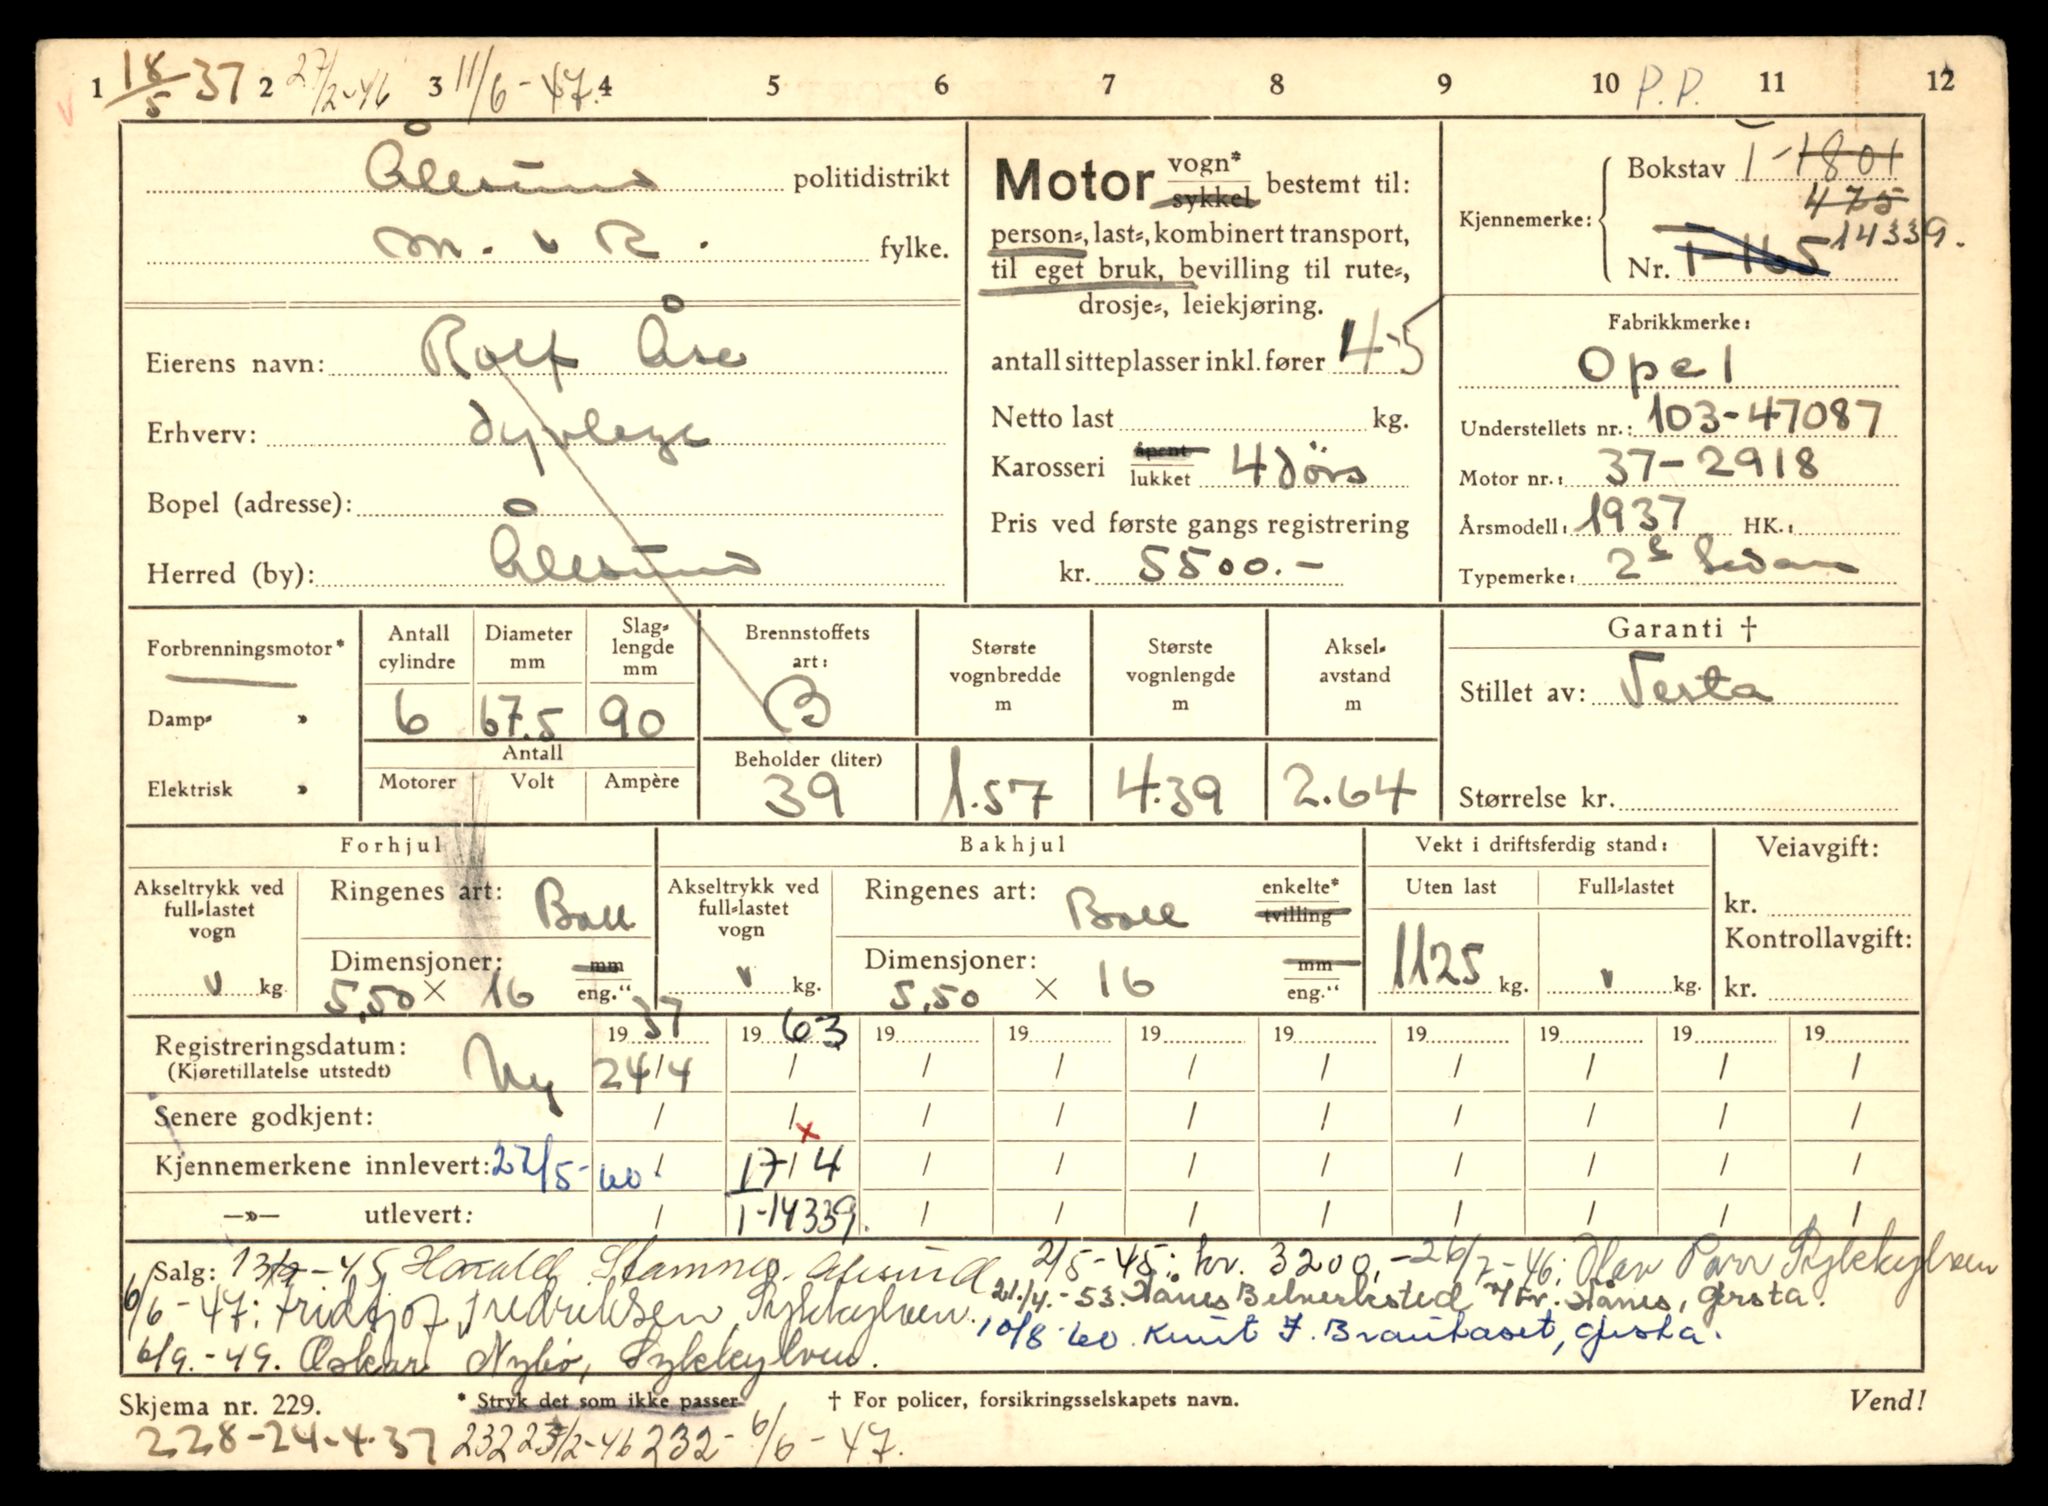 1 18/5 37 2 27/2-46 3 11/6-47. 4 5 6 7 8 9 10 P.P. 11 12
Ålesund politidistrikt
M. v R. fylke.
Eierens navn: Rolf Åse
Erhverv: dyrlege
Bopel (adresse):
Herred (by): Ålesund
Motor vogn* sykkel bestemt til:
person-, last-, kombinert transport,
til eget bruk, bevilling til rute-,
drosje-, leiekjøring.
antall sitteplasser inkl. fører 4-5
Netto last kg.
Karosseri åpent lukket 4 dørs
Pris ved første gangs registrering
kr. 5500.-
Kjennemerke: Bokstav T-1801
475
14339.
Nr. T-165
Fabrikkmerke:
Opel
Understellets nr.: 103-47087
Motor nr.: 37-2918
Årsmodell: 1937 HK.:
Typemerke: 2 L Sedan
Forbrenningsmotor*
Damp- »
Elektrisk »
Antall cylindre 6
Diameter mm 67.5
Slag-lengde mm 90
Antall
Motorer Volt Ampère
Brennstoffets art: B
Beholder (liter) 39
Største vognbredde m 1.57
Største vognlengde m 4.39
Aksel-avstand m 2.64
Garanti †
Stillet av: Vesta
Størrelse kr.
Forhjul
Akseltrykk ved full-lastet vogn v kg
Ringenes art: Ball
Dimensjoner: 5,50 × 16 mm eng."
Bakhjul
Akseltrykk ved full-lastet vogn v kg.
Ringenes art: Ball enkelte* tvilling
Dimensjoner: 5,50 × 16 mm eng."
Vekt i driftsferdig stand:
Uten last 1125 kg.
Full-lastet v kg.
Veiavgift:
kr.
Kontrollavgift:
kr.
19 37 19 63 19 19 19 19 19 19 19 19
Registreringsdatum: (Kjøretillatelse utstedt) Ny 24/4 / / / / / / / / /
Senere godkjent: / / / / / / / / / /
x
Kjennemerkene innlevert: 27/5-60. / 17/4 / / / / / / / /
—»— utlevert: / T-14339. / / / / / / / /
Salg: 13/2-45 Harald Stamnes. Ålesund 2/5-45: kr. 3200,- 26/2-46: Olav Parr Sykkylven
6/6-47: Fridtjof Fredriksen, Sykkylven. 21/4.-53. Hånes Bilverksted v/ Hånes, Ørsta.
6/9.-49. Oskar Nybø, Sykkylven. 10/8-60. Knut J. Brauthaset, Ørsta.
Skjema nr. 229. * Stryk det som ikke passer † For policer, forsikringsselskapets navn. Vend!
228-24-4-37 232 25/2-46 232- 6/6-47.